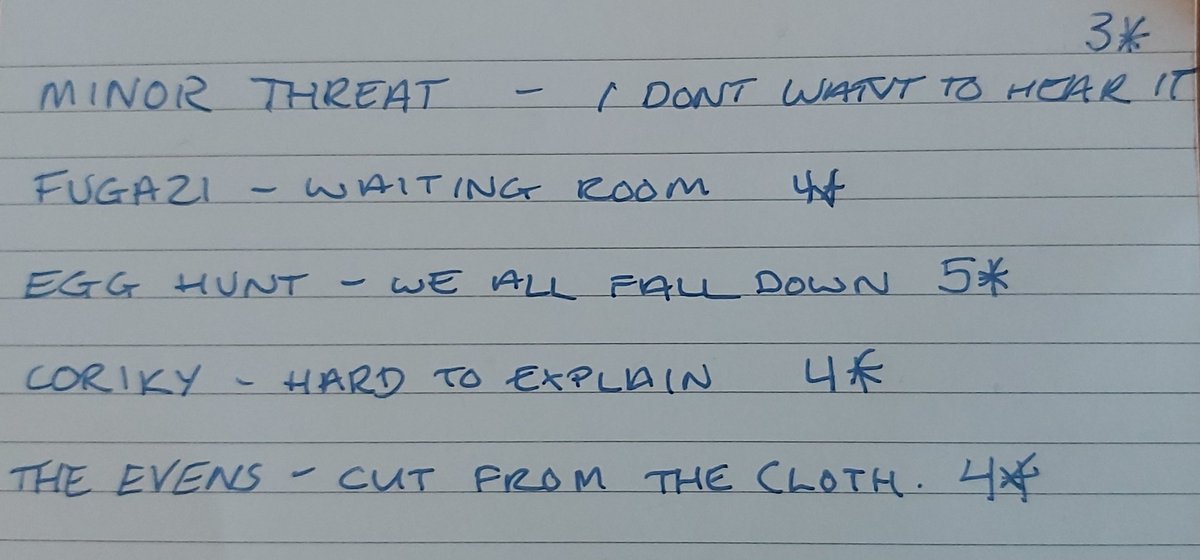 3*
MINOR THREAT - I DONT WANT TO HEAR IT
FUGAZI - WAITING ROOM 4*
EGG HUNT - WE ALL FALL DOWN 5*
CORIKY - HARD TO EXPLAIN 4*
THE EVENS - CUT FROM THE CLOTH. 4*